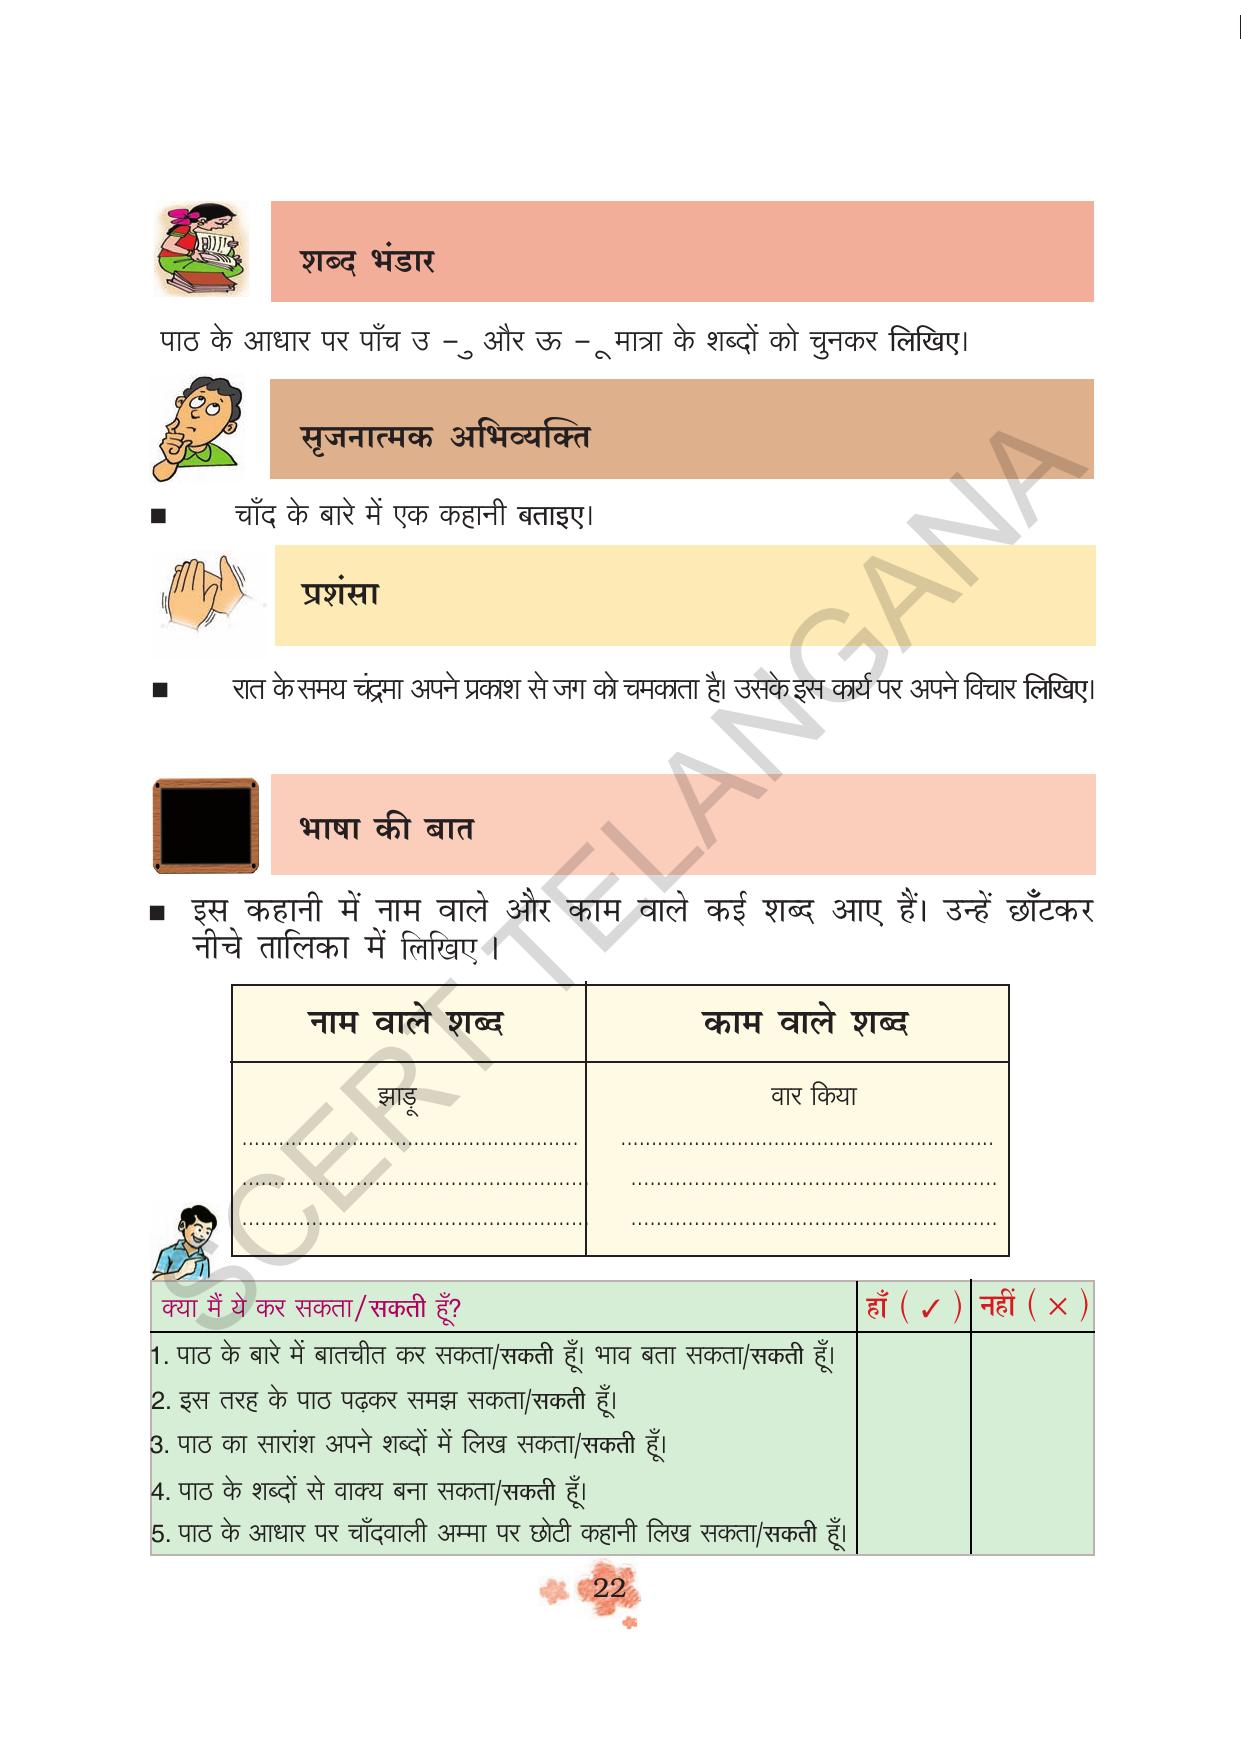 शब्द भंडार
पाठ के आधार पर पाँच उ – ु और ऊ – ू मात्रा के शब्दों को चुनकर लिखिए।
सृजनात्मक अभिव्यक्ति
■ चाँद के बारे में एक कहानी बताइए।
प्रशंसा
■ रात के समय चंद्रमा अपने प्रकाश से जग को चमकाता है। उसके इस कार्य पर अपने विचार लिखिए।
भाषा की बात
■ इस कहानी में नाम वाले और काम वाले कई शब्द आए हैं। उन्हें छाँटकर
नीचे तालिका में लिखिए ।
नाम वाले शब्द काम वाले शब्द
झाड़ू वार किया
क्या मैं ये कर सकता/सकती हूँ? हाँ ( ✓ ) नहीं ( × )
1. पाठ के बारे में बातचीत कर सकता/सकती हूँ। भाव बता सकता/सकती हूँ।
2. इस तरह के पाठ पढ़कर समझ सकता/सकती हूँ।
3. पाठ का सारांश अपने शब्दों में लिख सकता/सकती हूँ।
4. पाठ के शब्दों से वाक्य बना सकता/सकती हूँ।
5. पाठ के आधार पर चाँदवाली अम्मा पर छोटी कहानी लिख सकता/सकती हूँ।
22
SCERT TELANGANA